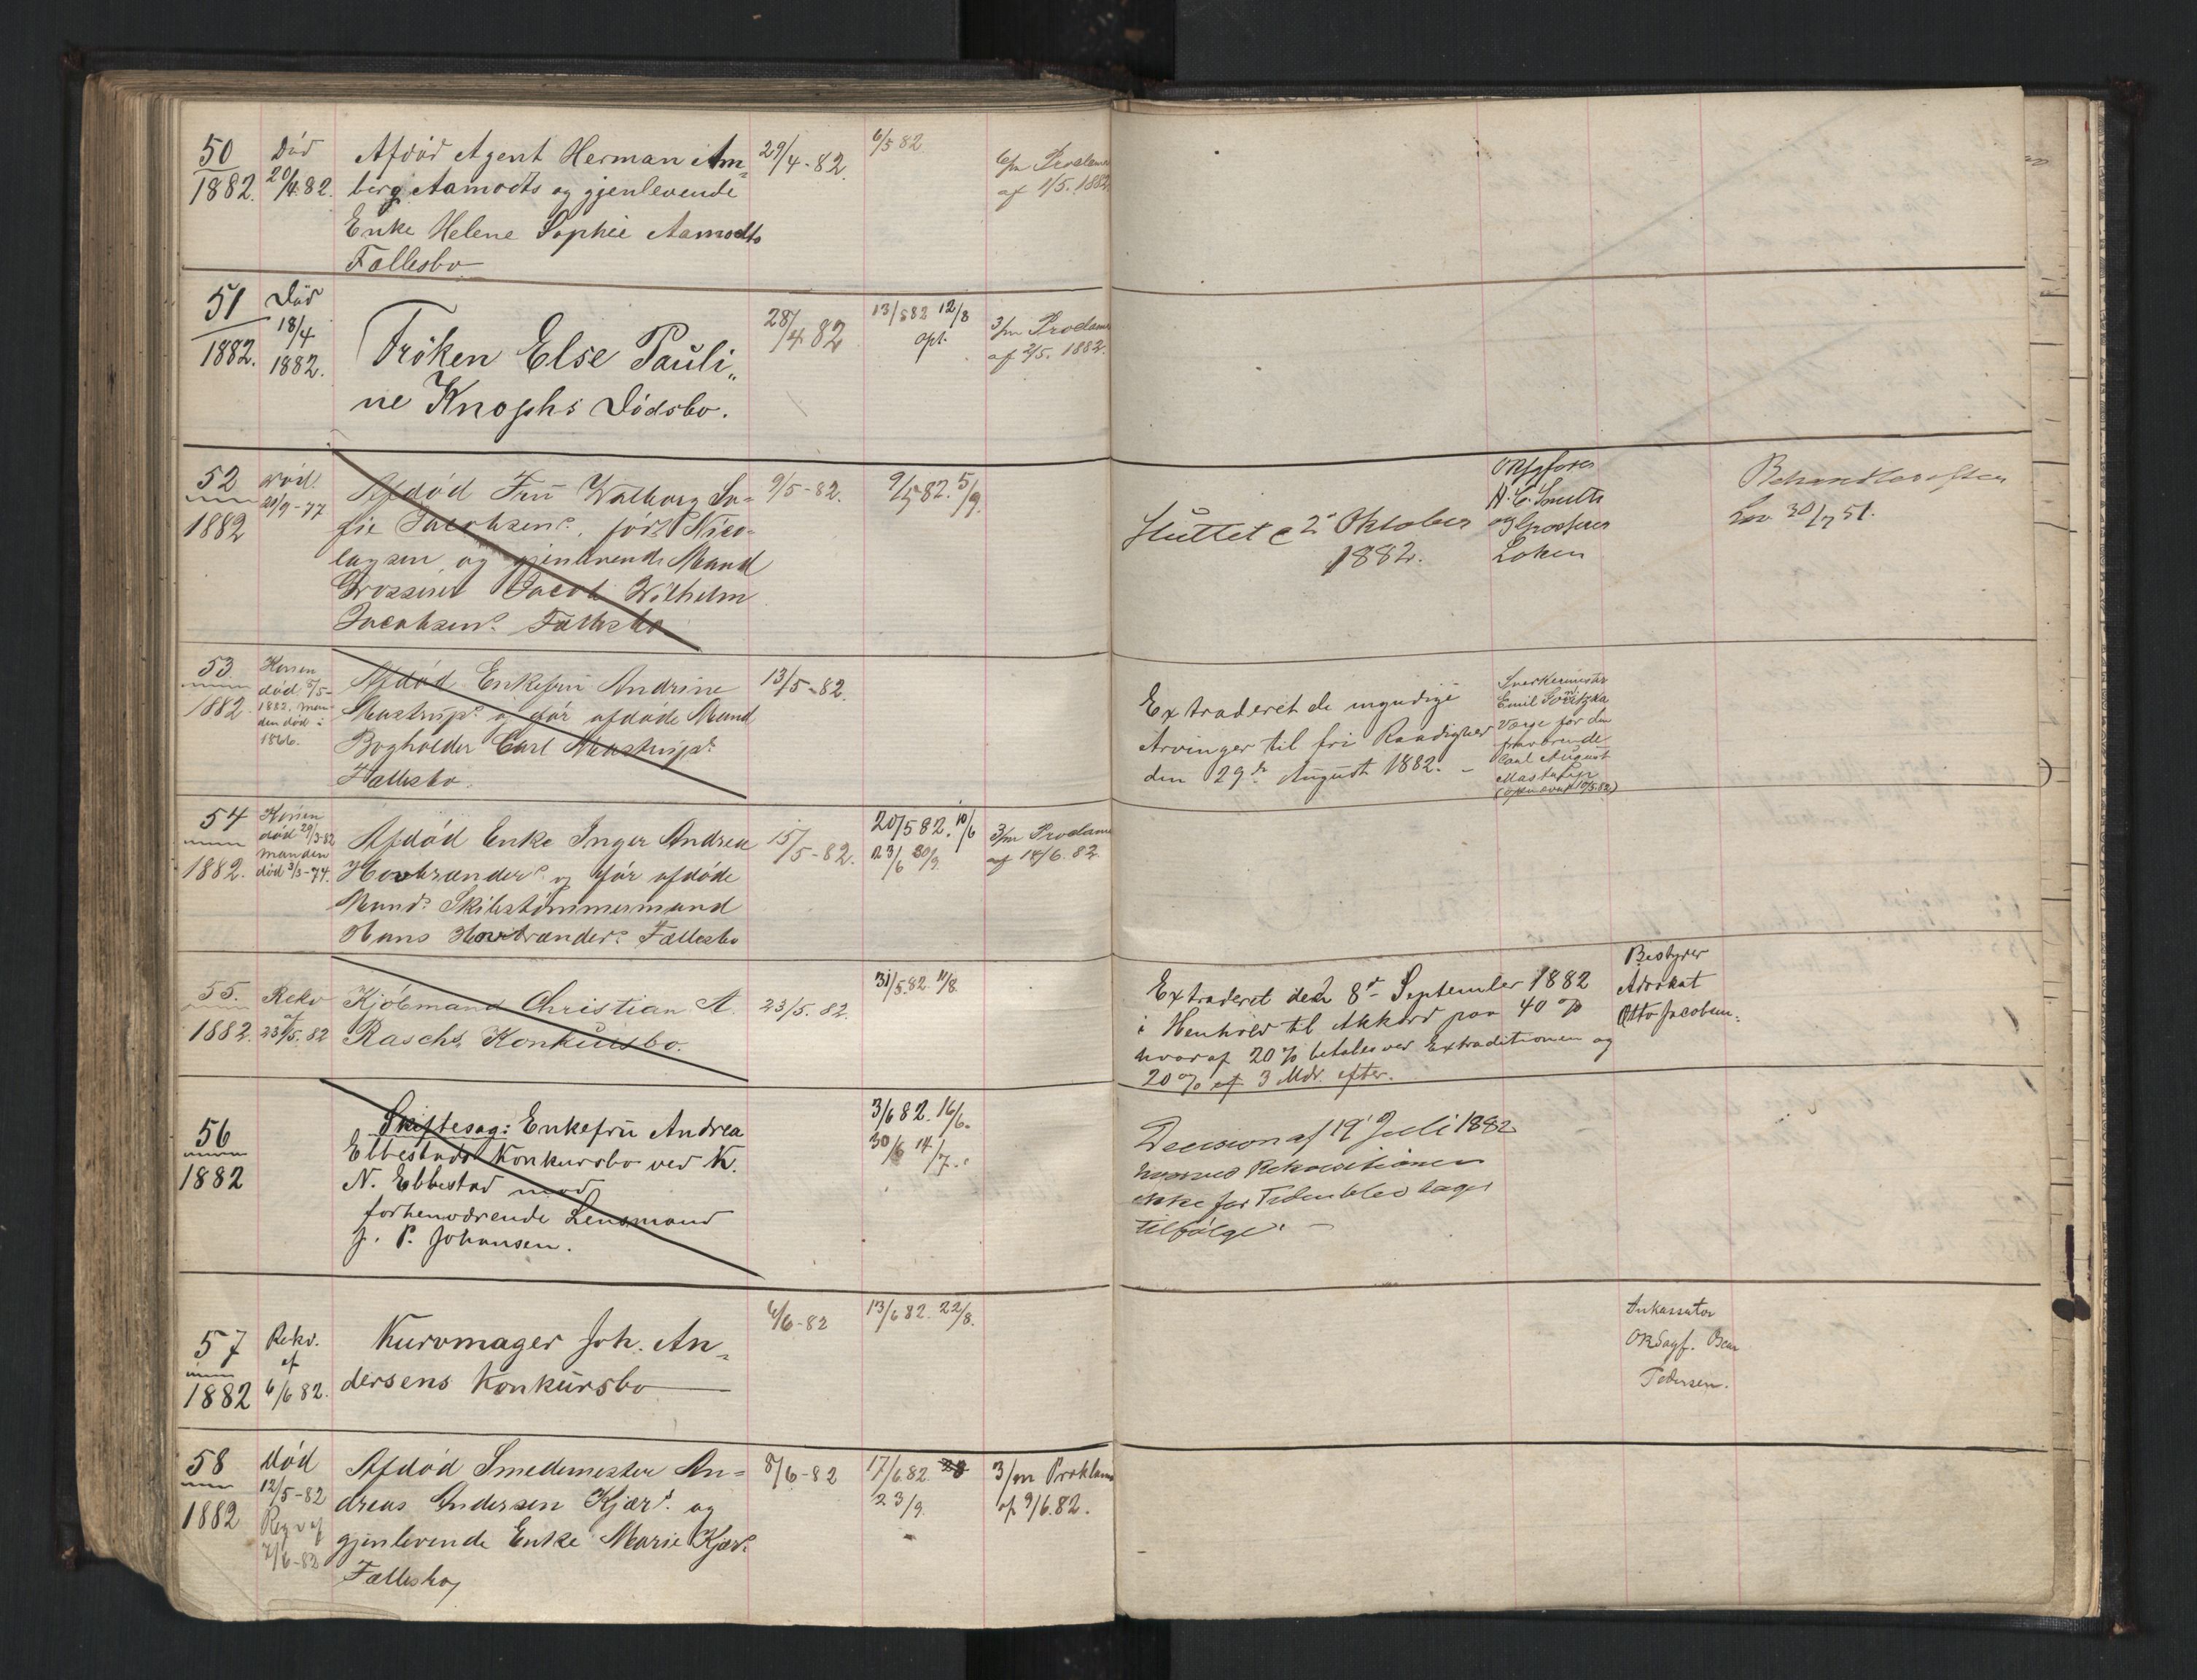 50
1882.
Død
20/4.82.
Afdød Agent Herman Am-
berg Aamodts og gjenlevende
Enke Helene Sophie Aamodts
Fællesbo
29/4-82.
6/5 82
6/m Proclama
af 1/5. 1882.
51
1882.
Död
18/4
1882.
Frøken Else Pauli„
ne Knophs Dödsbo.
28/4 82
13/5 82 12/8
opt.
3/m Proclama
af 2/5. 1882.
52
1882
Död.
Afdød Fru Walborg So-
fie Jacobsens, født Nico-
laysen, og gjenlevende Mand
Grosserer Jacob Wilhelm
Jacobsens Fællesbo
9/5-82.
9/5 82. 5/9.
Sluttet 2 Oktober
1882.
ORsagfører
H. C. Smith
og Grosserer
Loken
Behandles efter
Lov 30/7 51.
53
1882
Konen
død 3/5-
1882. Man-
den død i
1866.
Afdød Enkefru Andrine
Mastrups og før afdøde Mand
Bogholder Carl Mastrups
Fællesbo.
13/5-82.
Extraderet de myndige
Arvinger til fri Raadighed
den 29de August 1882. -
Emil
Værge for den
fraværende
Carl August
Mastrup
54
1882.
Konen
død 29/3-82
manden
død 3/3-74.
Afdød Enke Inger Andrea
Hovbrænders og før afdøde
Mands Skibstømmermand
Hans Hovbrænders Fællesbo
15/5-82.
20/5 82. 10/6
23/6 30/9.
3/m Proclama
af 14/6. 82.
55.
1882.
Rekv
af
23/5. 82
Kjøbmand Christian A.
Raschs Konkursbo.
23/5. 82.
31/5.82. 11/8.
Extraderet den 8de September 1882
i Henhold til Akkord paa 40 %
hvoraf 20 % betales ved Extraditionen og
20 % 3 Mdr. efter.
Bestyrer
Advokat
Otto Jacobsen.
56
1882
Skiftesag: Enkefru Andrea
Ebbestads Konkursbo ved K.
N. Ebbestad mod
forhenværende Lensmand
J. P. Johansen.
3/6 82. 16/6.
30/6 14/7.
Decision af 19 Juli 1882
hvorved Rekvisitionen
ikke for Tiden blev taget
tilfølge. -
57
1882
Rekv.
af
6/6 82.
Kurvmager Joh. An-
dersens Konkursbo
6/6-82
13/6 82. 22/8.
Inkassator
ORSagf. Oscar
Pedersen.
58
1882
Død
12/5-82
Reqv af
7/6-82
Afdød Smedemester An-
dreas Andersen Kjærs og
gjenlevende Enke Marie Kjærs
Fællesbo
8/6-82
17/6.82
23/9.
3/m Proklama
af 9/6.82.